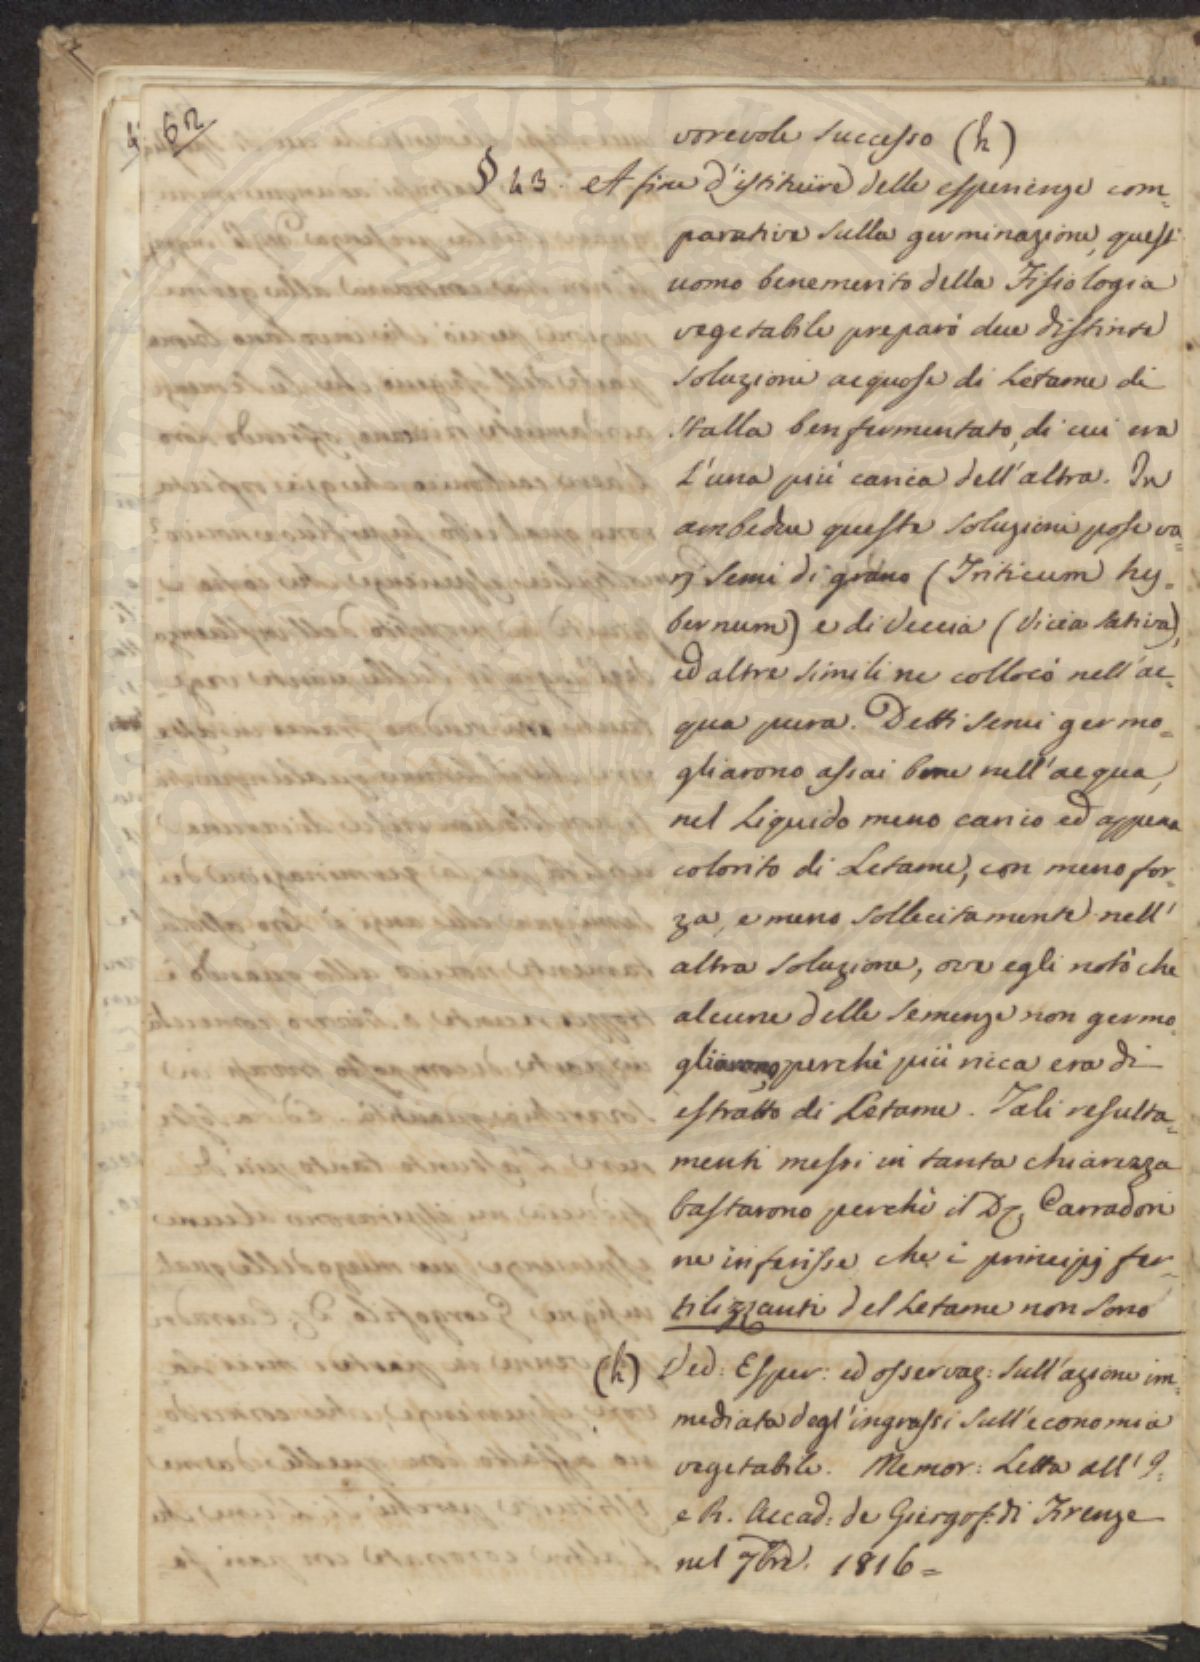 62
vorevole successo (h)
§ 43. A fine d'istituire delle esperienze com=
parative sulla germinazione, quest'
uomo benemerito della Fisiologia
vegetabile preparò due distinte
soluzioni acquose di Letame di
stalla ben fermentato, di cui era
l'una più carica dell'altra. In
ambedue queste soluzioni pose va=
rj semi di grano (Triticum hy=
bernum) e di Veccia (Vicia sativa),
ed altre simili ne collocò nell'ac=
qua pura. Detti semi germo=
gliarono assai bene nell'acqua,
nel Liquido meno carico ed appena
colorito di Letame, con meno for=
za, e meno sollecitamente nell'
altra soluzione, ove egli notò che
alcune delle semenze non germo=
gliarono, perchè più ricca era di
estratto di Letame. Tali resulta=
menti messi in tanta chiarezza
bastarono perchè il Dr. Carradori
ne inferisse che i principj fer=
tilizzanti del Letame non sono
(h) Ved: Esper: ed osservaz: sull'azione im=
mediata degl'ingrassi sull'economia
vegetabile. Memor: Letta all'I.
e R. Accad: de Giergof: di Firenze
nel 7bre. 1816=